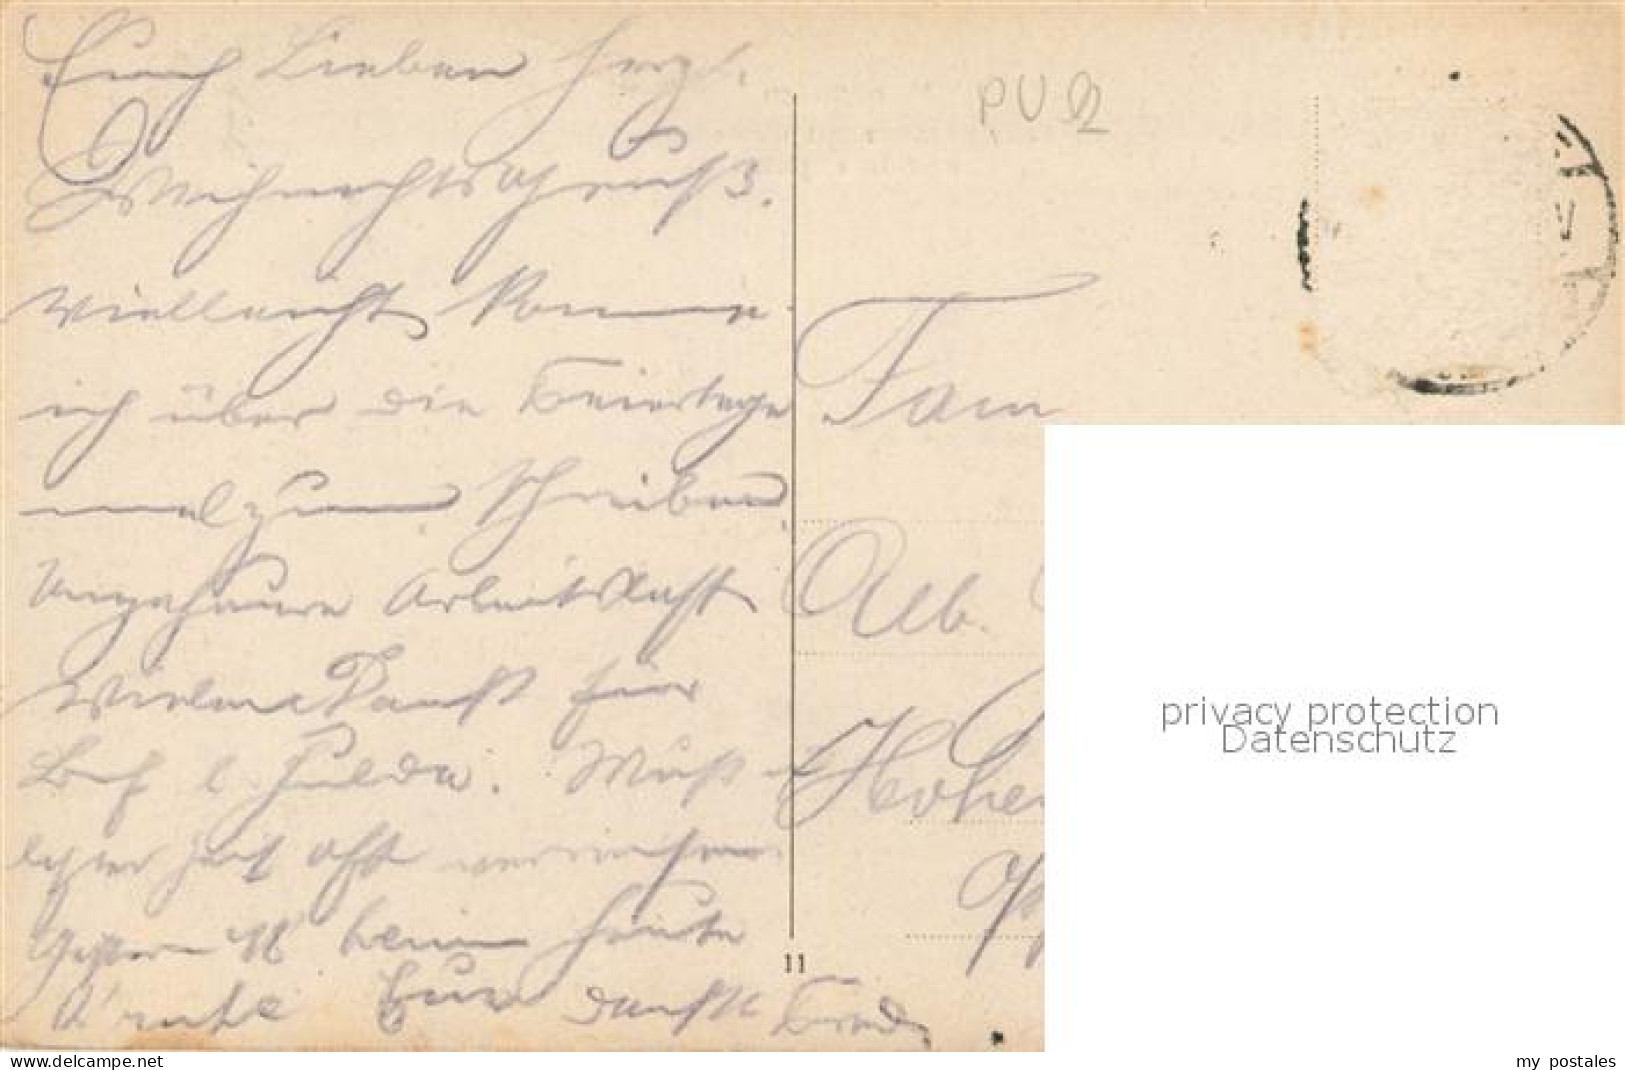 Euch Lieben herzl.
Weihnachtsgruß.
Vielleicht komme
ich über die Feiertage
mal zum Schreiben
Ungeheure Arbeitslast
Vielen Dank für
Fulda. Mußt
Zeit oft
Gestern heim heute
Euer dankb.
PU
Fam
Alb.
Hohe
11
privacy protection
Datenschutz
www.delcampe.net
my_postales